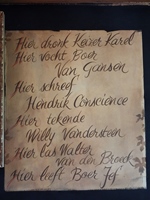 Hier dronk Keizer Karel
Hier vocht Boer
Van Gansen
Hier schreef
Hendrik Conscience
Hier tekende
Willy Vandersteen
Hier las Walter
van den Broeck
Hier leeft Boer Jef